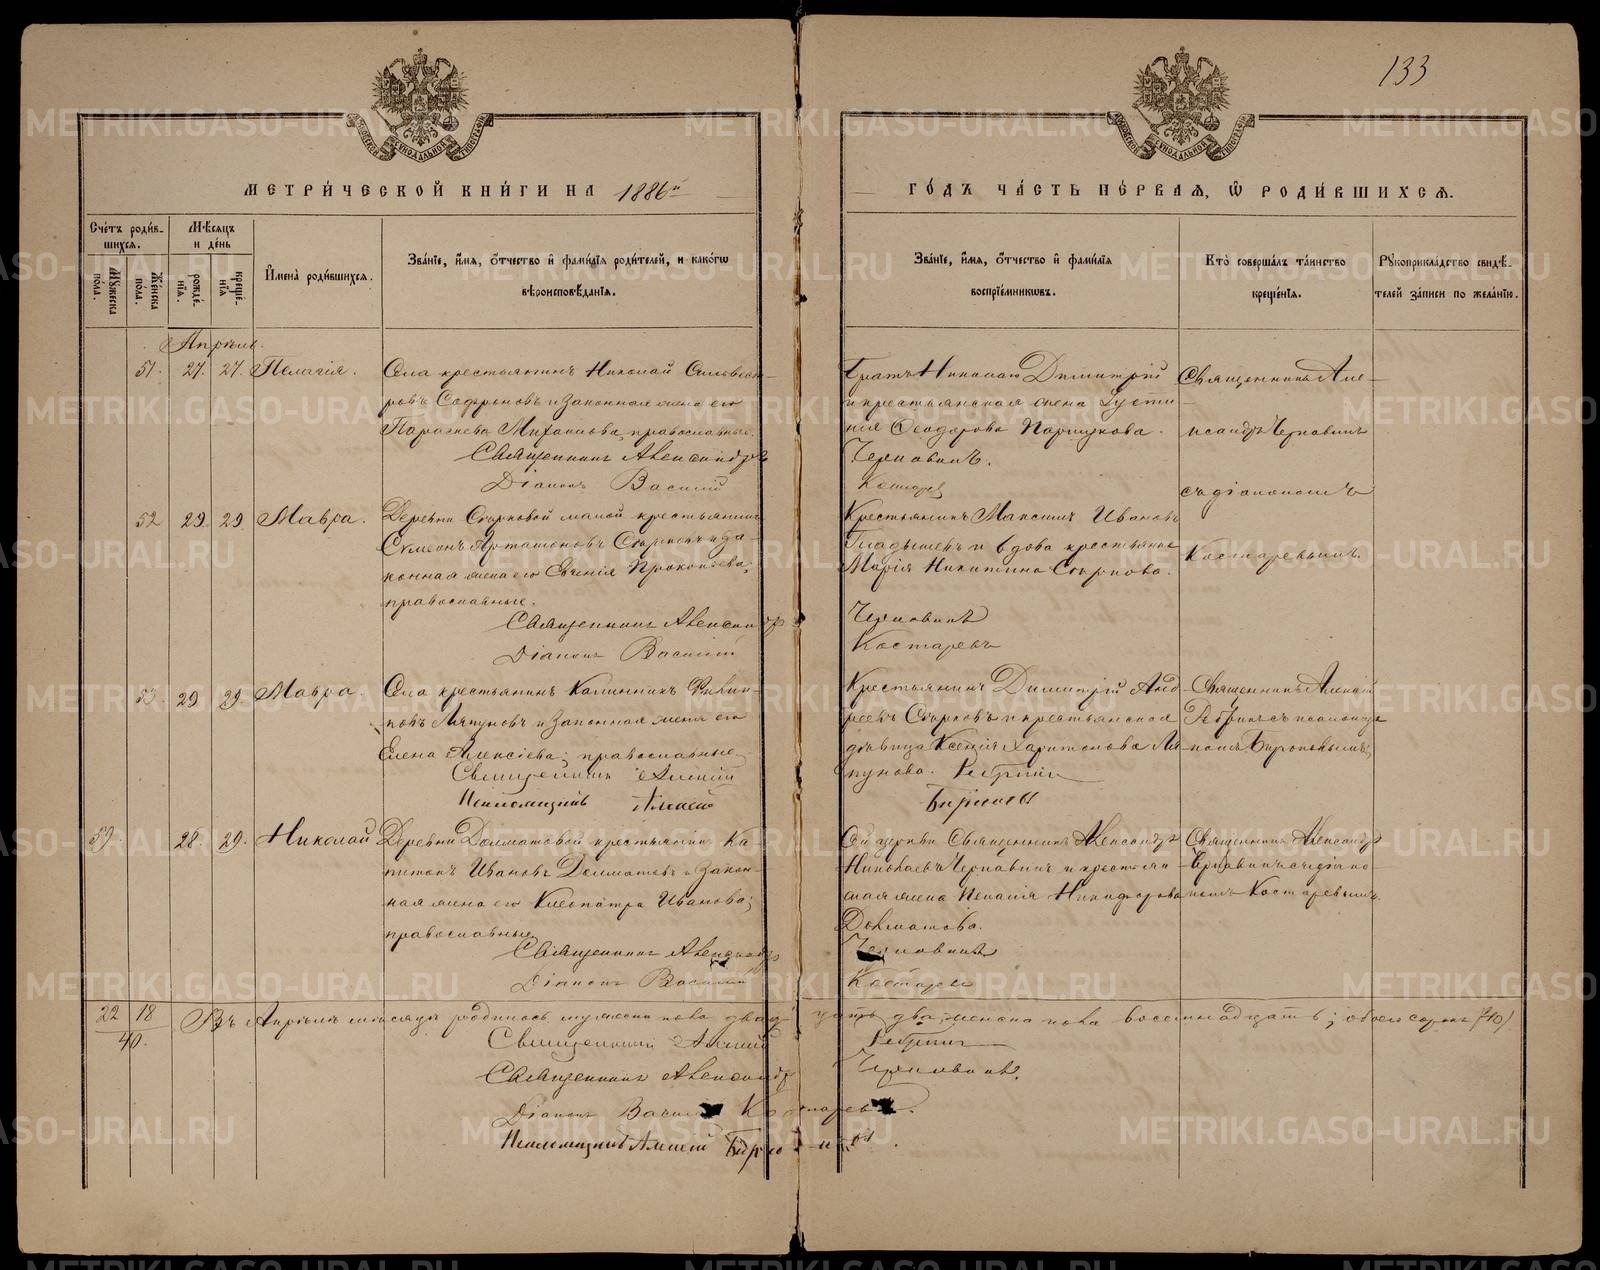 133
МЕТРИ́ЧЕСКОЙ КНИ́ГИ НА 1886й ГО́ДЪ ЧА́СТЬ ПЕ́РВАЯ, Ѿ РОДИ́ВШИХСЯ.
Сче́тъ роди́вшихся.
Мѣ́сяцъ и де́нь
Имена̀ роди́вшихся.
Зва́нїе, и́мя, ѻ́тчество и҆ фами́лїя роди́телей, и како́гѡ вѣроисповѣ́данїя.
Зва́нїе, и́мя, ѻ́тчество и҆ фами́лїя воспрїе́мникѡвъ.
Кто̀ соверша́лъ та́инство креще́нїя.
Рꙋкоприкла́дство свидѣ́телей за́писи по жела́нїю.
Мꙋ́жеска по́ла.
Же́нска по́ла.
рожде́нїя.
креще́нїя
Апрѣль.
51. 27. 27. Пелагія.
Села крестьянинъ Николай Силвест-
ровъ Софроновъ и законная жена его
Параскева Михаилова, православные.
Священникъ Александръ
Діаконъ Василій
Братъ Николаю Димитрій
и крестьянская жена Іусти
нія Ѳеодорова Паршукова.
Чернавинъ.
Костарев
Священникъ Але-
ксандръ Чернавинъ
съ діакономъ
Костаревымъ.
52 29. 29 Мавра.
Деревни Старковой малой крестьянинъ
Симеонъ Артамоновъ Старковъ и за-
конная жена его Евгенія Прокопьева,
православные.
Священникъ Александръ
Діаконъ Василій
Крестьянинъ Максимъ Ивановъ
Гладышевъ и вдова крестьянская
Марія Никитина Старкова.
Чернавинъ
Костаревъ
53. 29 29 Мавра.
Села крестьянинъ Калинникъ Филип-
повъ Ляпуновъ и законная жена его
Елена Алексіева; православные.
Священникъ Алексій
Псаломщикъ Алексей
Крестьянинъ Димитрій Анд
реевъ Старковъ и крестьянская
дѣвица Ксенія Харитонова Ля-
пунова. Ребринъ
Бирюковъ
Священникъ Алексій
Ребринъ съ псаломщи
комъ Бирюковымъ;
59. 28. 29. Николай
Деревни Долматовой крестьянинъ Ка-
питонъ Ивановъ Долматовъ и закон-
ная жена его Клеопатра Иванова;
православные
Священникъ Александръ
Діаконъ Василій
Сей церкви Священникъ Александръ
Николаевъ Чернавинъ и крестьян
ская жена Пелагія Никифорова
Долматова.
Чернавинъ
Костарев
Священникъ Александръ
Чернавинъ съ діако-
номъ Костаревымъ.
22 18
40.
Въ Апрѣлѣ мѣсяцѣ родилось мужеска пола двадцать два, женска пола восемнадцать; обоего сорокъ (40)
Священникъ Алексій Ребринъ
Священникъ Александръ Чернавинъ.
Діаконъ Василій Костаревъ.
Псаломщикъ Алексей Бирюковъ.